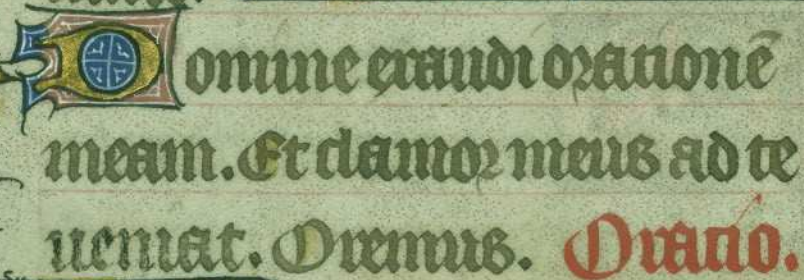 Domine exaudi orationē
meam. Et clamor meus ad te
ueniat. Oremus. Oratio.